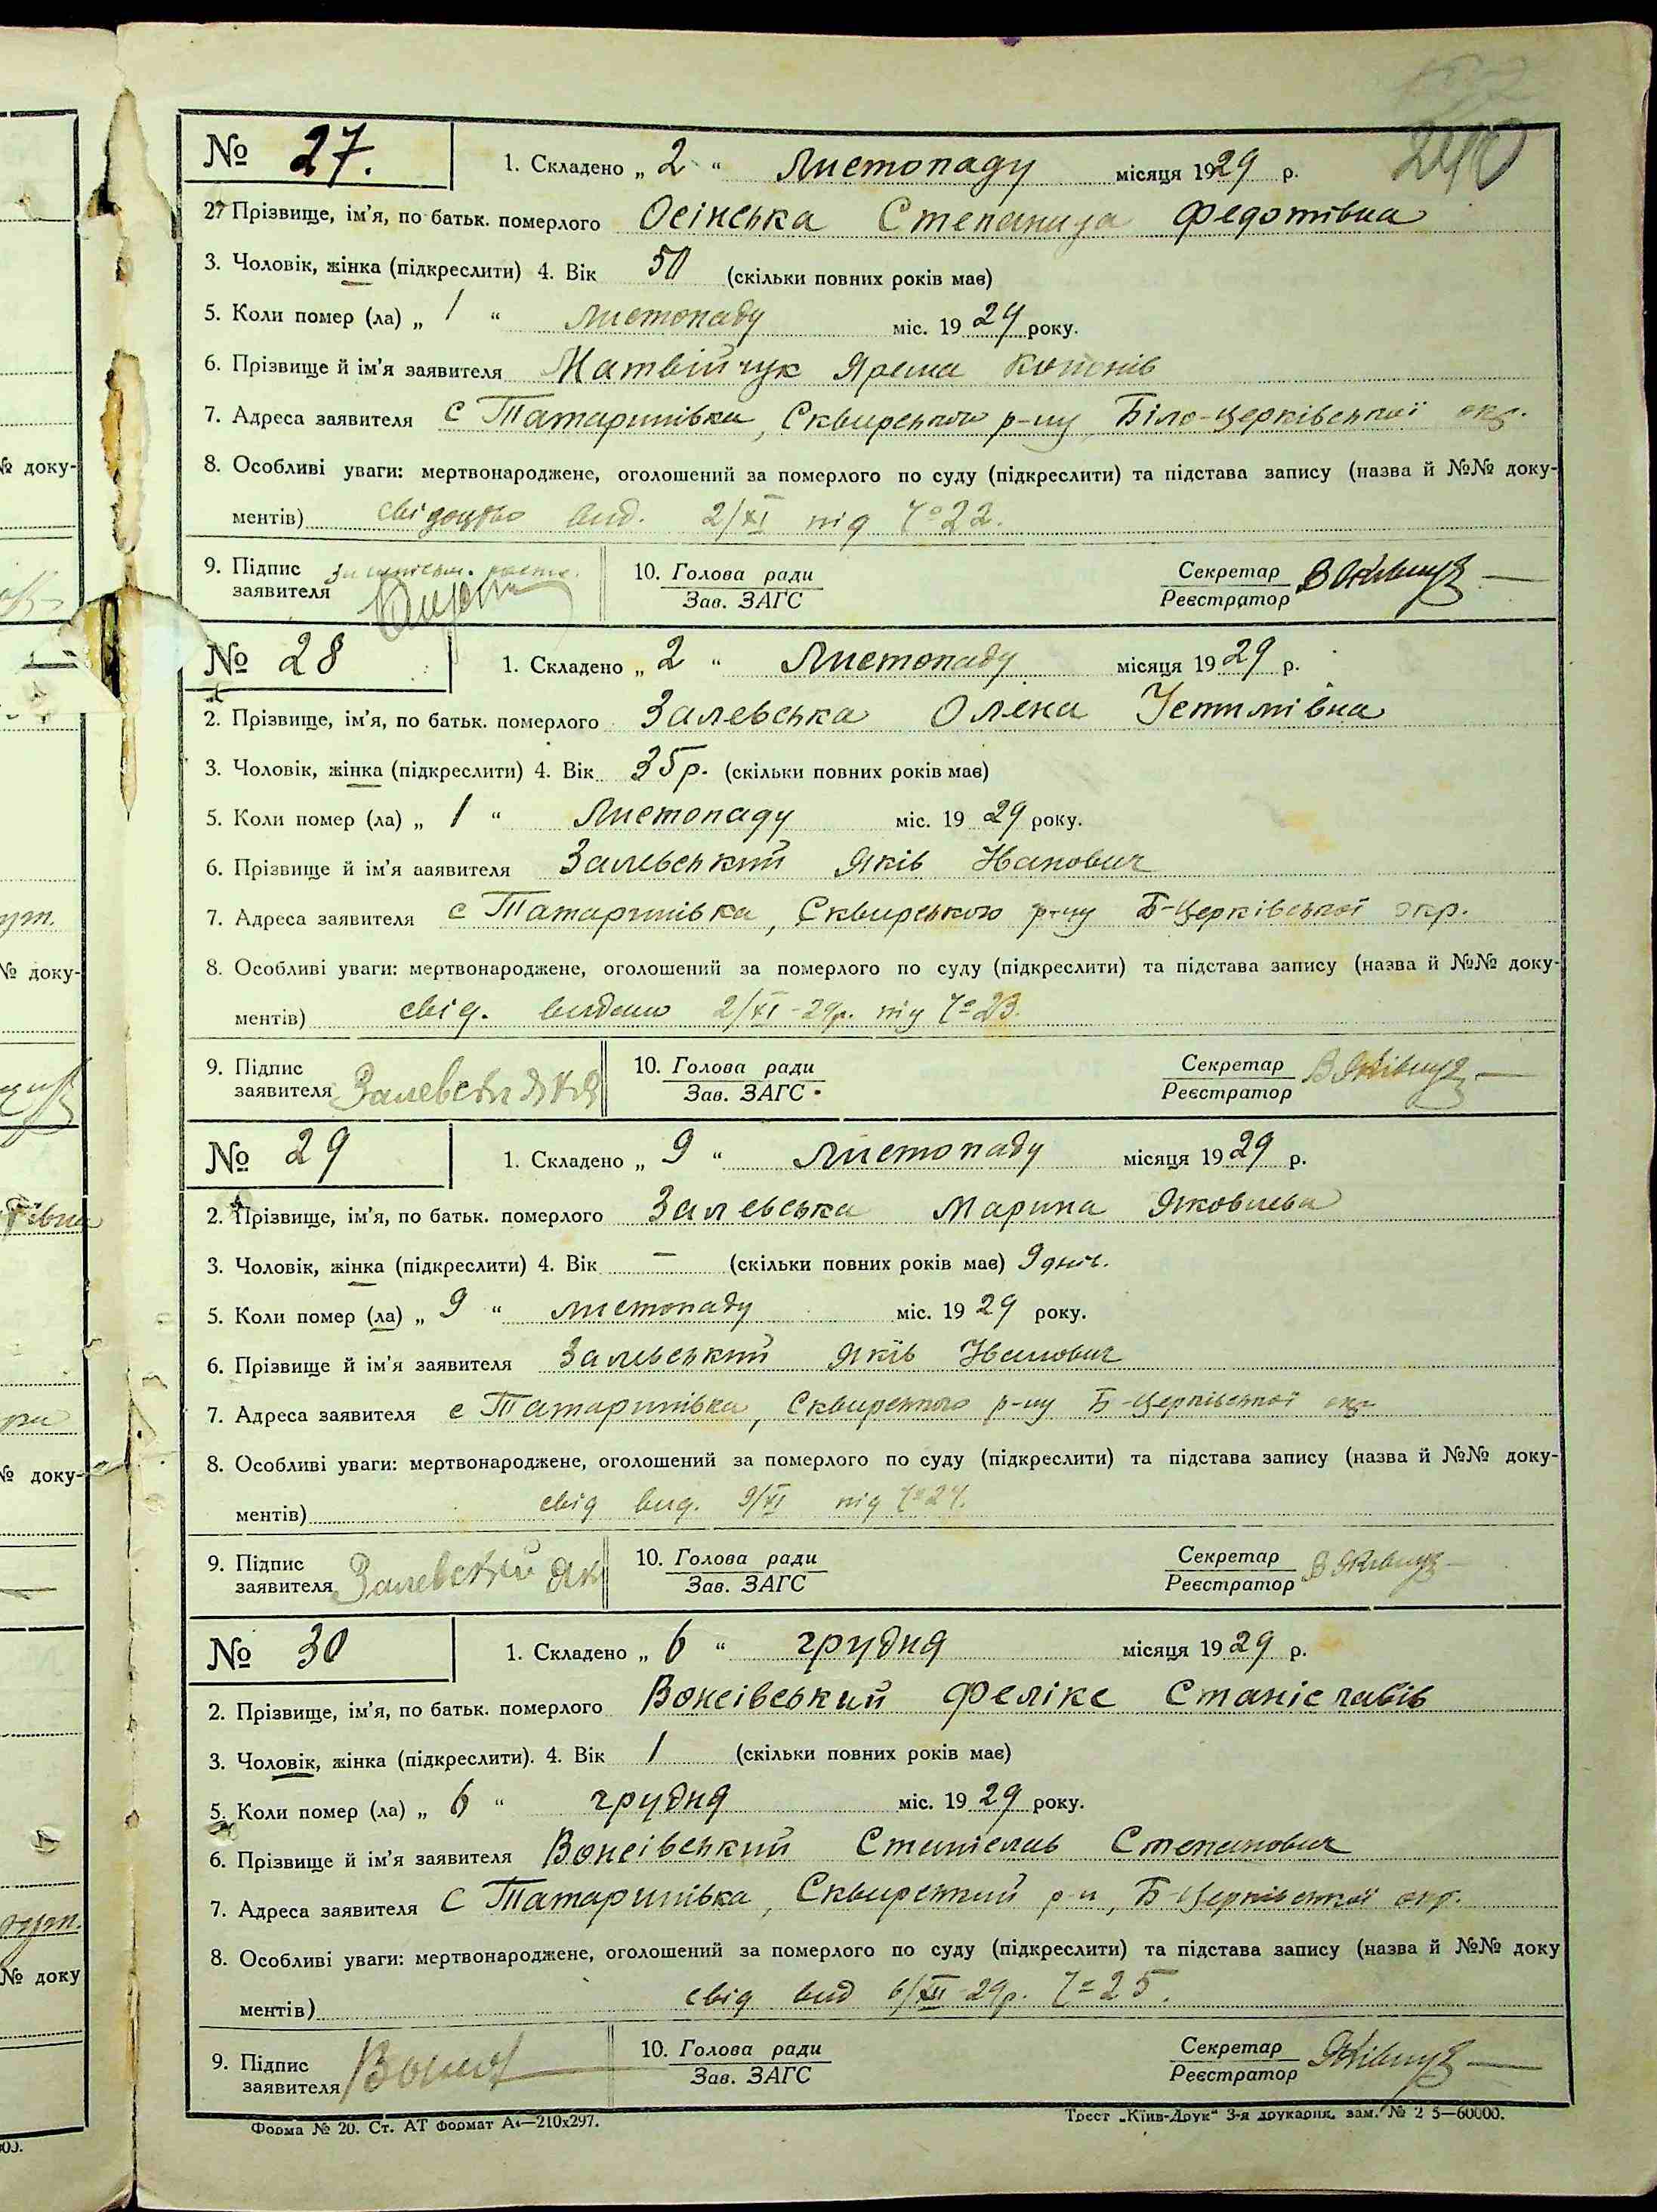 240
№ 27.
1. Складено „ 2 “ Листопаду місяця 1929 р.
2. Прізвище, ім'я, по батьк. померлого Осінська Степанида Федотівна
3. Чоловік, жінка (підкреслити) 4. Вік 50 (скільки повних років має)
5. Коли помер (ла) „ 1 “ листопаду міс. 19 29 року.
6. Прізвище й ім'я заявителя Матвійчук Ярема
7. Адреса заявителя с Татаринівка, Сквирського р-ну Біло-Церківської окр.
8. Особливі уваги: мертвонароджене, оголошений за померлого по суду (підкреслити) та підстава запису (назва й №№ доку-
ментів) свідоцтво вид. 2/XI під Ч° 22.
9. Підпис
заявителя
10. Голова ради
Зав. ЗАГС
Секретар
Реєстратор
№ 28
1. Складено „ 2 “ Листопаду місяця 19 29 р.
2. Прізвище, ім'я, по батьк. померлого Залевська Олена Устимівна
3. Чоловік, жінка (підкреслити) 4. Вік 35 р. (скільки повних років має)
5. Коли помер (ла) „ 1 “ Листопаду міс. 19 29 року.
6. Прізвище й ім'я заявителя Залевський Яків Іванович
7. Адреса заявителя с Татаринівка, Сквирського р-ну Б-Церківської окр.
8. Особливі уваги: мертвонароджене, оголошений за померлого по суду (підкреслити) та підстава запису (назва й №№ доку-
ментів) свід. видано 2/XI-29р. під Ч° 23.
9. Підпис
заявителя
10. Голова ради
Зав. ЗАГС
Секретар
Реєстратор
№ 29
1. Складено „ 9 “ Листопаду місяця 19 29 р.
2. Прізвище, ім'я, по батьк. померлого Залевська Марина Яковлева
3. Чоловік, жінка (підкреслити) 4. Вік — (скільки повних років має) 9 днів.
5. Коли помер (ла) „ 9 “ листопаду міс. 19 29 року.
6. Прізвище й ім'я заявителя Залевський Яків Іванович
7. Адреса заявителя с Татаринівка, Сквирського р-ну Б-Церківської окр
8. Особливі уваги: мертвонароджене, оголошений за померлого по суду (підкреслити) та підстава запису (назва й №№ доку-
ментів) свід вид. 9/XI під Ч° 24.
9. Підпис
заявителя Залевский Як
10. Голова ради
Зав. ЗАГС
Секретар
Реєстратор
№ 30
1. Складено „ 6 “ грудня місяця 19 29 р.
2. Прізвище, ім'я, по батьк. померлого Вонсівський Фелікс Станіславів
3. Чоловік, жінка (підкреслити). 4. Вік 1 (скільки повних років має)
5. Коли помер (ла) „ 6 “ грудня міс. 19 29 року.
6. Прізвище й ім'я заявителя Вонсівський Станіслав Степанович
7. Адреса заявителя с Татаринівка, Сквирський р-н, Б-Церківської окр.
8. Особливі уваги: мертвонароджене, оголошений за померлого по суду (підкреслити) та підстава запису (назва й №№ доку
ментів) свід вид 6/XII 29р. Ч= 25.
9. Підпис
заявителя
10. Голова ради
Зав. ЗАГС
Секретар
Реєстратор
Форма № 20. Ст. АТ формат А4—210х297.
Трест „Київ-Друк“ 3-я друкарня, зам. № 2 5—60000.